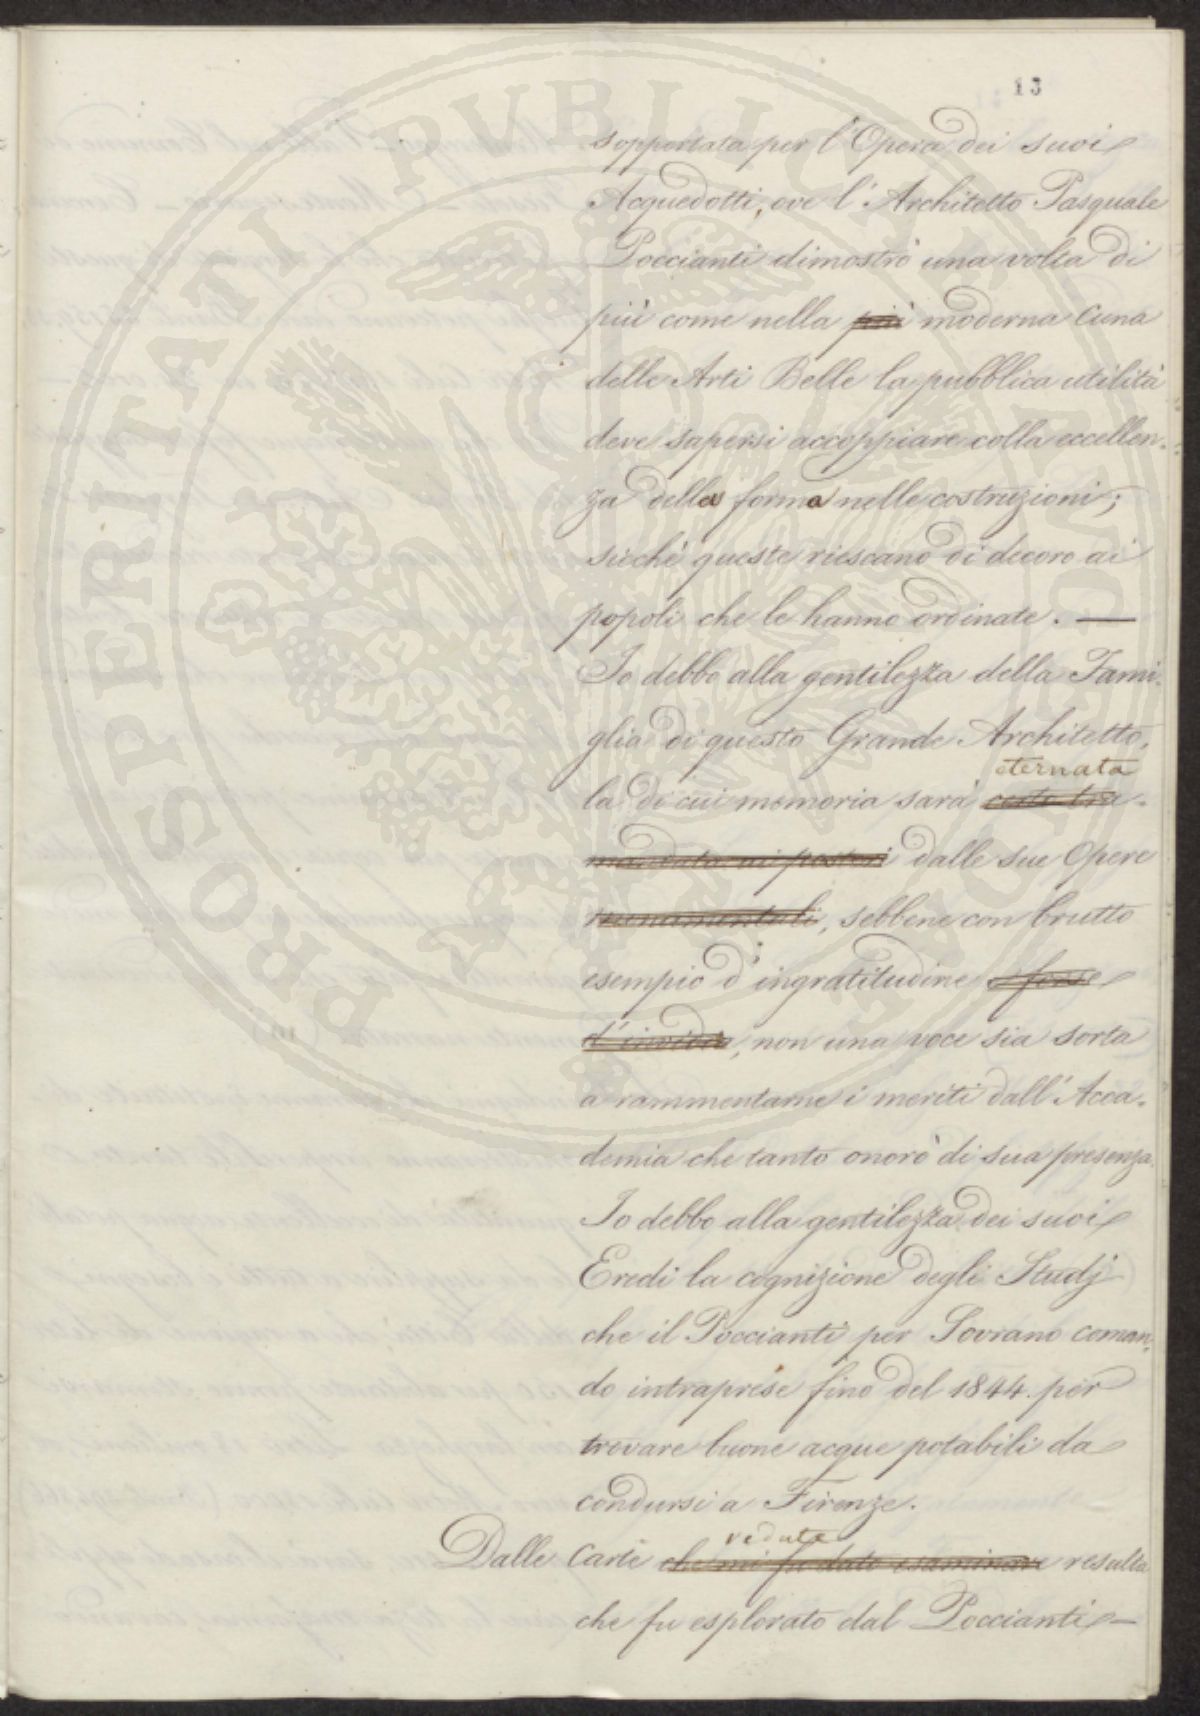 13
sopportata per l'Opera dei suoi
Acquedotti, ove l'Architetto Pasquale
Poccianti dimostrò una volta di
più come nella più moderna Cuna
delle Arti Belle la pubblica utilità
deve sapersi accoppiare colla eccellen-
za della forma nelle costruzioni;
sicchè queste riescano di decoro ai
popoli che le hanno ordinate. —
Io debbo alla gentilezza della Fami-
glia di questo Grande Architetto,
eternata
la di cui memoria sarà certo tra-
mandata ai posteri dalle sue Opere
monumentali, sebbene con brutto
esempio d'ingratitudine e forse
d'invidia, non una voce sia sorta
a rammentarne i meriti dall'Acca-
demia che tanto onorò di sua presenza.
Io debbo alla gentilezza dei suoi
Eredi la cognizione degli Studj
che il Poccianti per Sovrano coman-
do intraprese fino del 1844. per
trovare buone acque potabili da
condursi a Firenze.
vedute
Dalle Carte che mi fu dato esaminare resulta
che fu esplorato dal Poccianti —
PROSPERITATI PUBLICAE